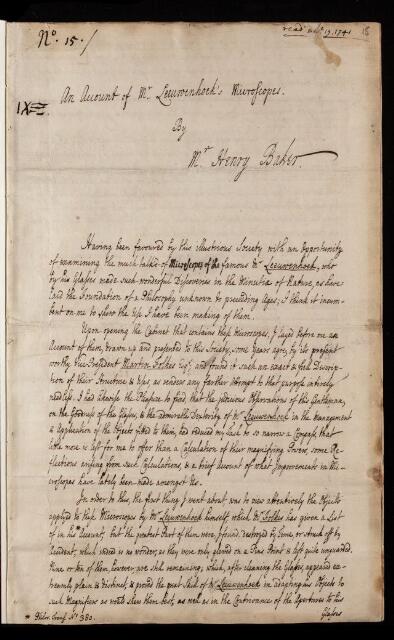 No. 15./
read 17. 1741
18
IX
An Account of Mr. Leeuwenhoek's Microscopes.
By
Mr. Henry Baker.
Having been favoured by this illustrious Society with an Opportunity
of examining the much talk'd of Microscopes of the famous Mr. Leeuwenhoek, who
by his Glasses made such wonderful Discoveries in the Minutiæ of Nature, as have
laid the Foundation of a Philosophy unknown to preceeding Ages; I think it incum-
bent on me to shew the Use I have been making of them.
Upon opening the Cabinet that contains these Microscopes, I layed before me an
Account of them, drawn up and presented to this Society, some Years ago, by its present
worthy Vice President Martin Folkes Esqr. and found it such an exact & full Descrip-
tion of their Structure & Uses, as renders any farther Attempt to that purpose intirely
needless. I had likewise the Pleasure to find, that the judicious Observations of this Gentleman,
on the Goodness of the Glasses, & the admirable Dexterity of Mr. Leeuwenhoek in the Management
& Application of the Objects fitted to them, had reduced my Task to so narrow a Compass, that
little more is left for me to offer than a Calculation of their magnifying Powers, some Re-
flections arising from such Calculations, & a brief Account of what Improvements in Mi-
croscopes have lately been made amongst Us.
In order to this, the first thing I went about was to view attentively the Objects
applyed to these Microscopes by Mr. Leeuwenhoek himself, which Mr. Folkes has given a List
of in his Account, but the greatest Part of them were, I found, destroyed by Time, or struck off by
Accident; which indeed is no wonder, as they were only glewed on a Pin's Point & left quite unguarded.
Nine or ten of them however are still remaining; which, after cleaning the Glasses, appeared ex-
tremely plain & distinct, & proved the great Skill of Mr. Leeuwenhoek in adapting his Objects to
such Magnifiers as would shew them best, as well as in the Contrivance of the Apertures to his
Glasses
* Philos: Transf. No. 380.